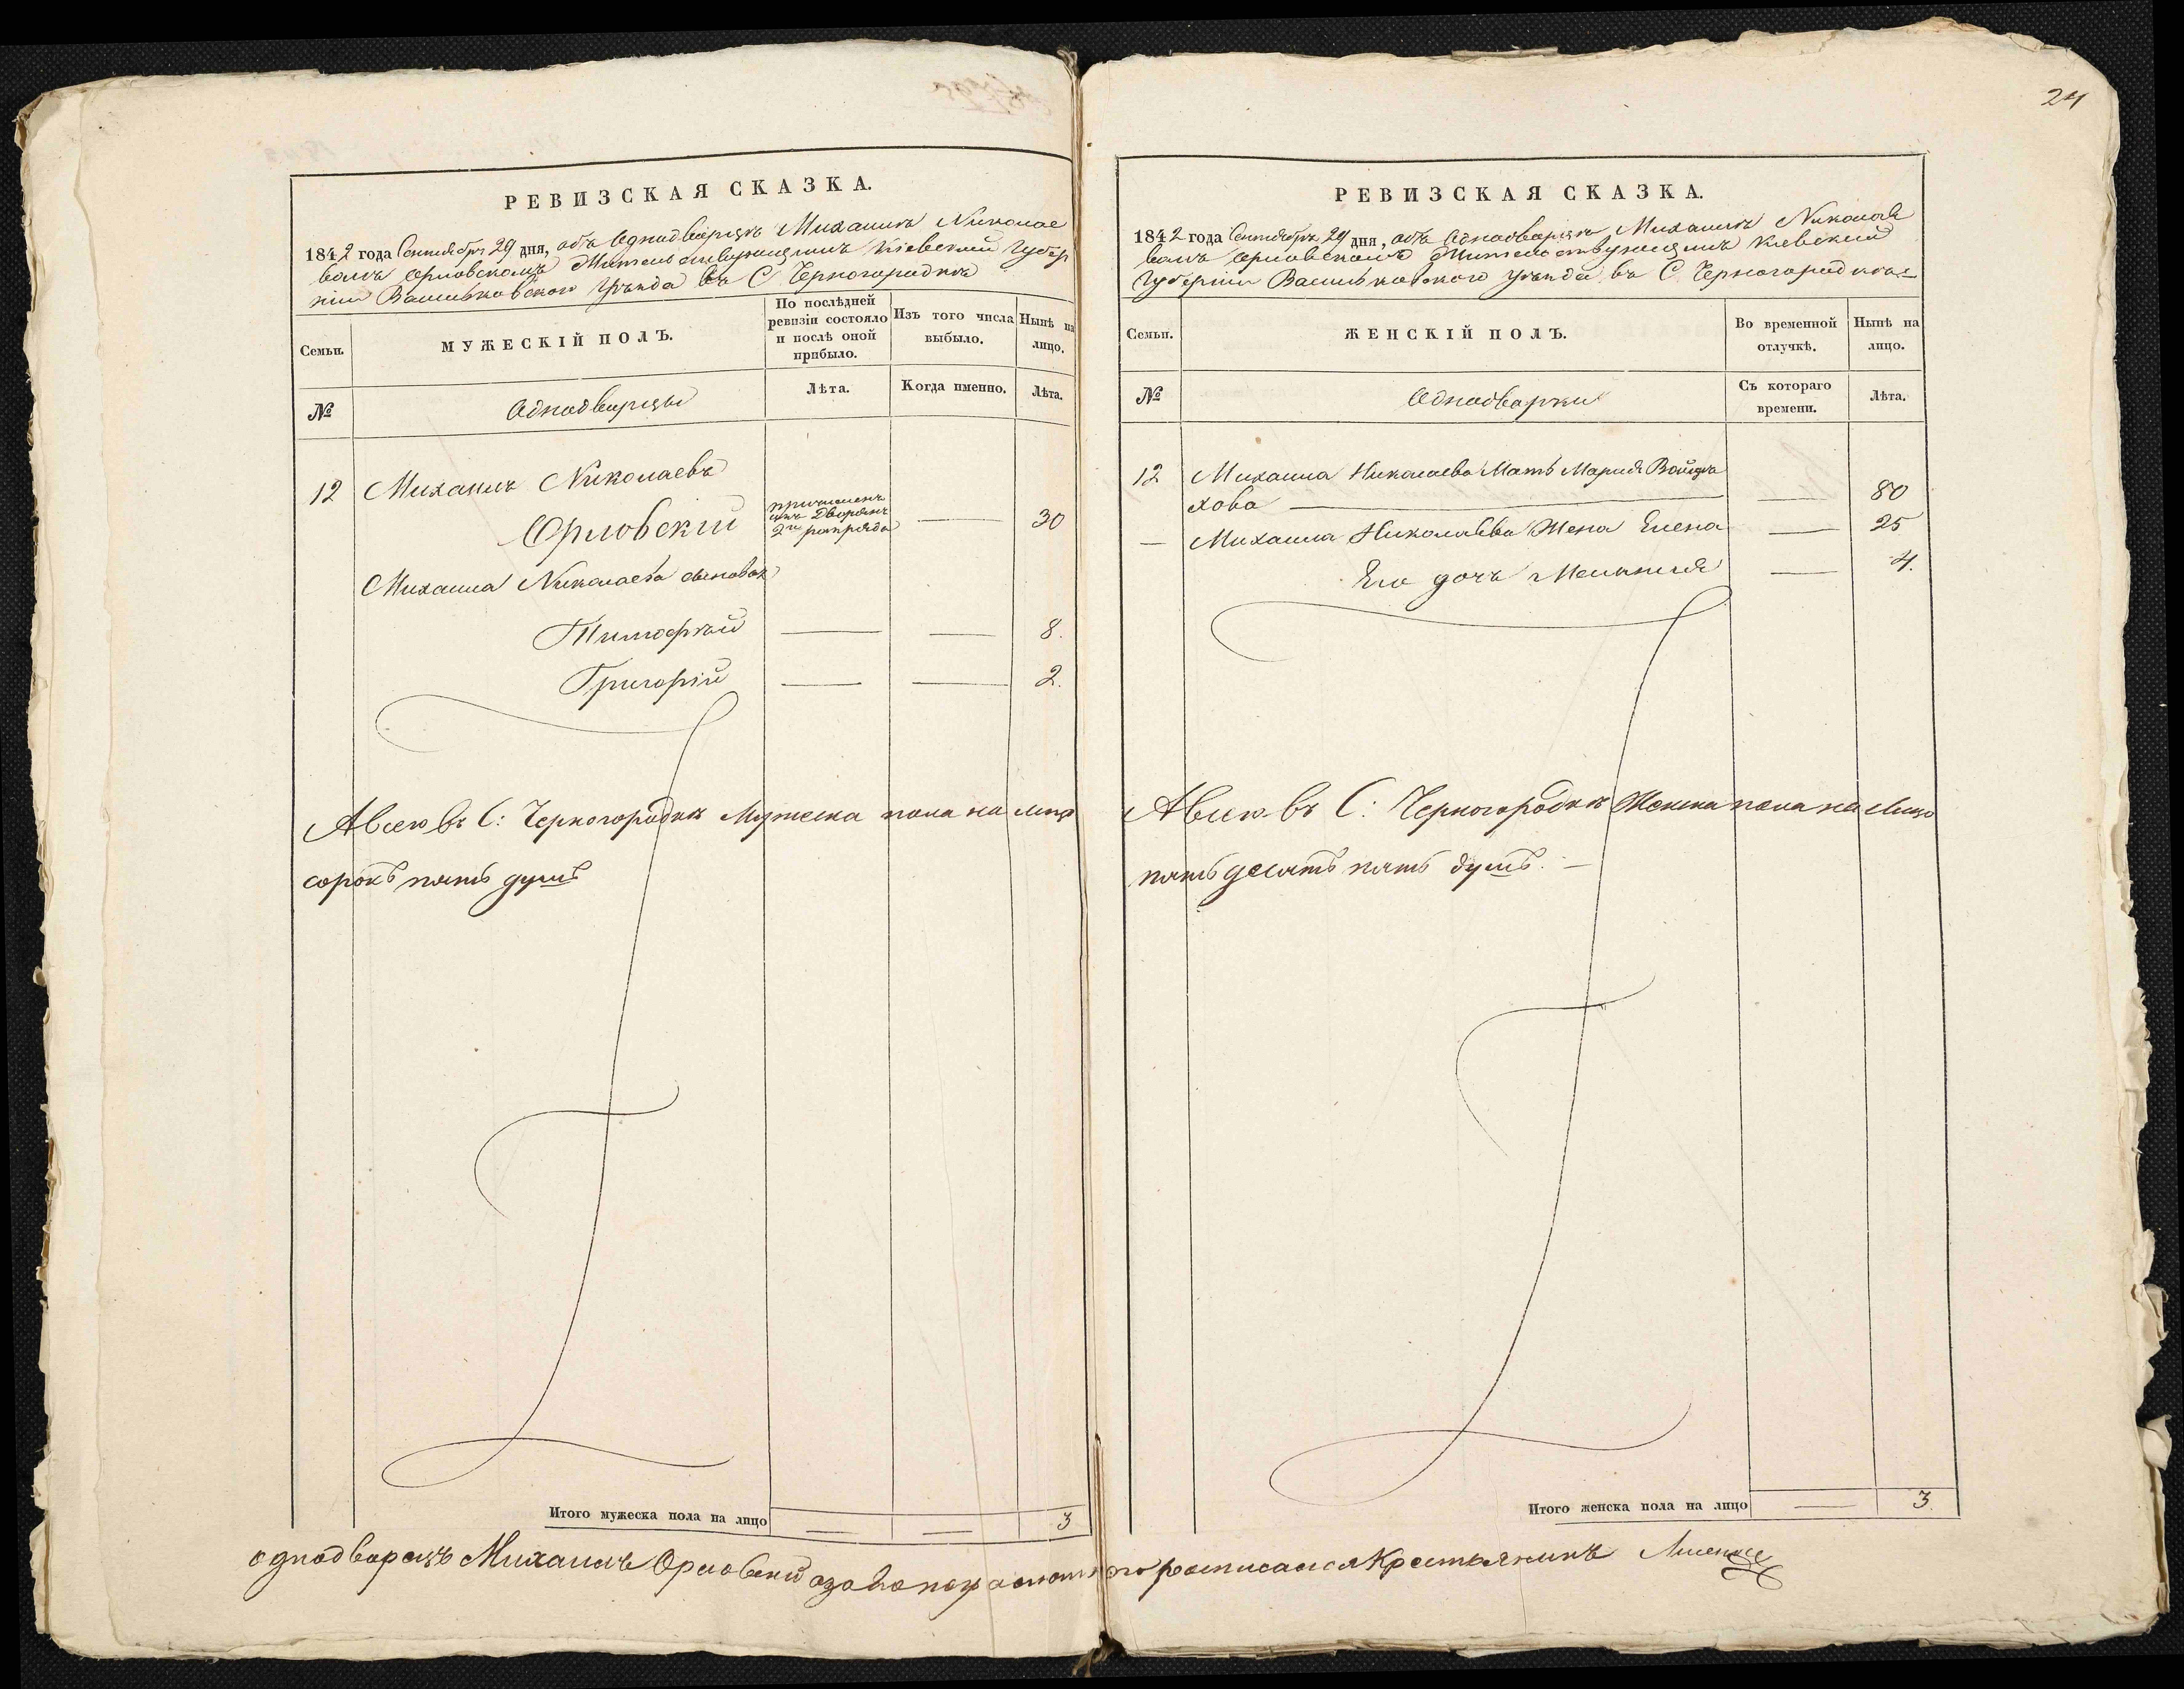 РЕВИЗСКАЯ СКАЗКА.
1842 года Сентября 29 дня, объ Однодворцѣ Михаилѣ Николае
вомъ Орловскомъ Жительствующимъ Кіевской Губер
ніи Васильковского Уѣзда въ С. Черногородкѣ
Семьи.
МУЖЕСКІЙ ПОЛЪ.
По послѣдней
ревизіи состояло
и послѣ оной
прибыло.
Изъ того числа
выбыло.
Нынѣ на
лицо.
№
Однодворцы
Лѣта.
Когда именно.
Лѣта.
12 Михаилъ Николаевъ
Орловскій
причисленъ
изъ Дворянъ
2го разряда
— 30
Михаила Николаева сыновья
Тимофѣй — — 8.
Григорій — — 2.
А всего въ С: Черногородкѣ Мужеска пола на лицо
сорокъ пять душъ
Итого мужеска пола на лицо — — 3
24
РЕВИЗСКАЯ СКАЗКА.
1842 года Сентября 29 дня, объ Однодворцѣ Михаилѣ Николае
вомъ Орловскомъ Жительствующимъ Кіевской
Губерніи Васильковского Уѣзда въ С. Черногородкѣ
Семьи.
ЖЕНСКІЙ ПОЛЪ.
Во временной
отлучкѣ.
Нынѣ на
лицо.
№
Однодворки
Съ котораго
времени.
Лѣта.
12 Михаила Николаева Мать Марія Войцѣ
хова — — 80
— Михаила Николаева Жена Елена — 25
Его дочь Меланія — 4.
А всего въ С: Черногородкѣ Женска пола на лицо
пятьдесятъ пять душъ. —
Итого женска пола на лицо — 3
однодворецъ Михаилъ Орловскій росписался Крестьянинъ